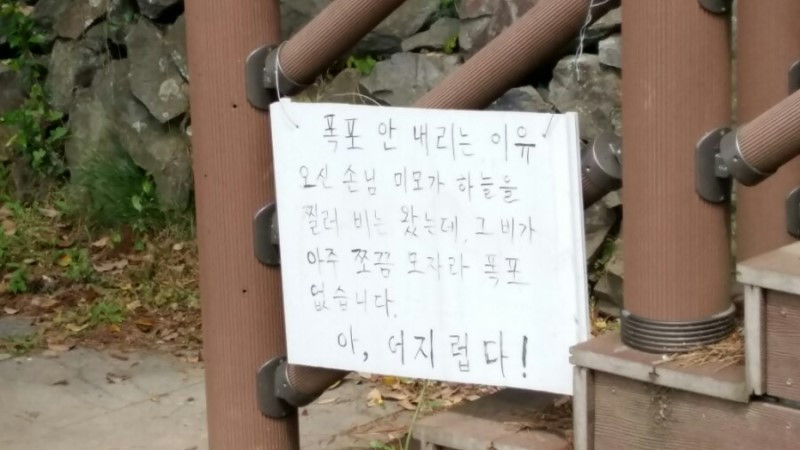 폭포 안 내리는 이유
오신 손님 미모가 하늘을
찔러 비는 왔는데, 그 비가
아주 쪼끔 모자라 폭포
없습니다.
아, 어지럽다!